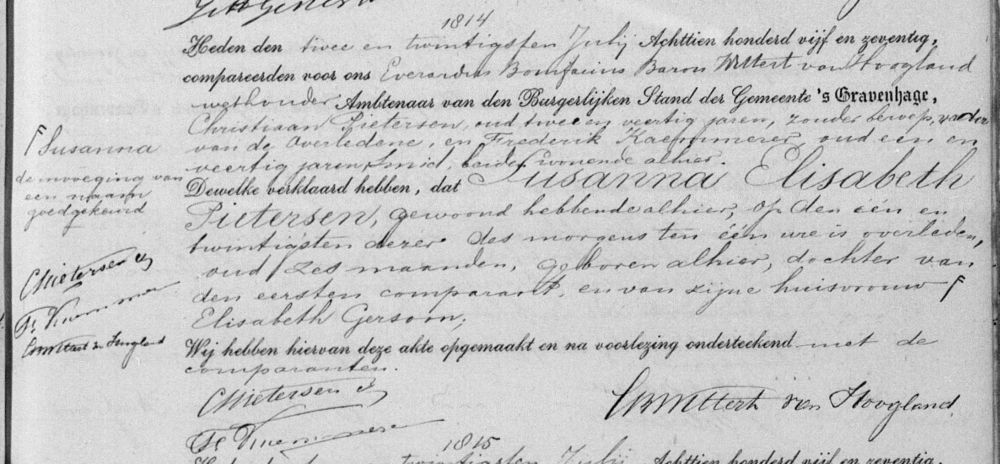 1814
Heden den twee en twintigsten Julij Achttien honderd vijf en zeventig,
compareerden voor ons Everardus Bonifacius Baron Wittert van Hoogland
wethouder Ambtenaar van den Burgerlijken Stand der Gemeente 's Gravenhage,
Christiaan Pietersen, oud twee en veertig jaren, zonder beroep, vader
van de overledene, en Frederik Kaemmerer, oud een en
veertig jaren, smid, beiden wonende alhier.
Dewelke verklaard hebben, dat Susanna Elisabeth
Pietersen, gewoond hebbende alhier, op den één en
twintigsten dezer des morgens ten één ure is overleden,
oud zes maanden, geboren alhier, dochter van
den eersten comparant, en van zijne huisvrouw
Elisabeth Gersoon,
Wij hebben hiervan deze akte opgemaakt en na voorlezing onderteekend met de
comparanten.
CPietersen
van Hoogland
Susanna
de invoeging van
een naam
goedgekeurd
CPietersen
1815
twintigsten Julij Achttien honderd vijf en zeventig,